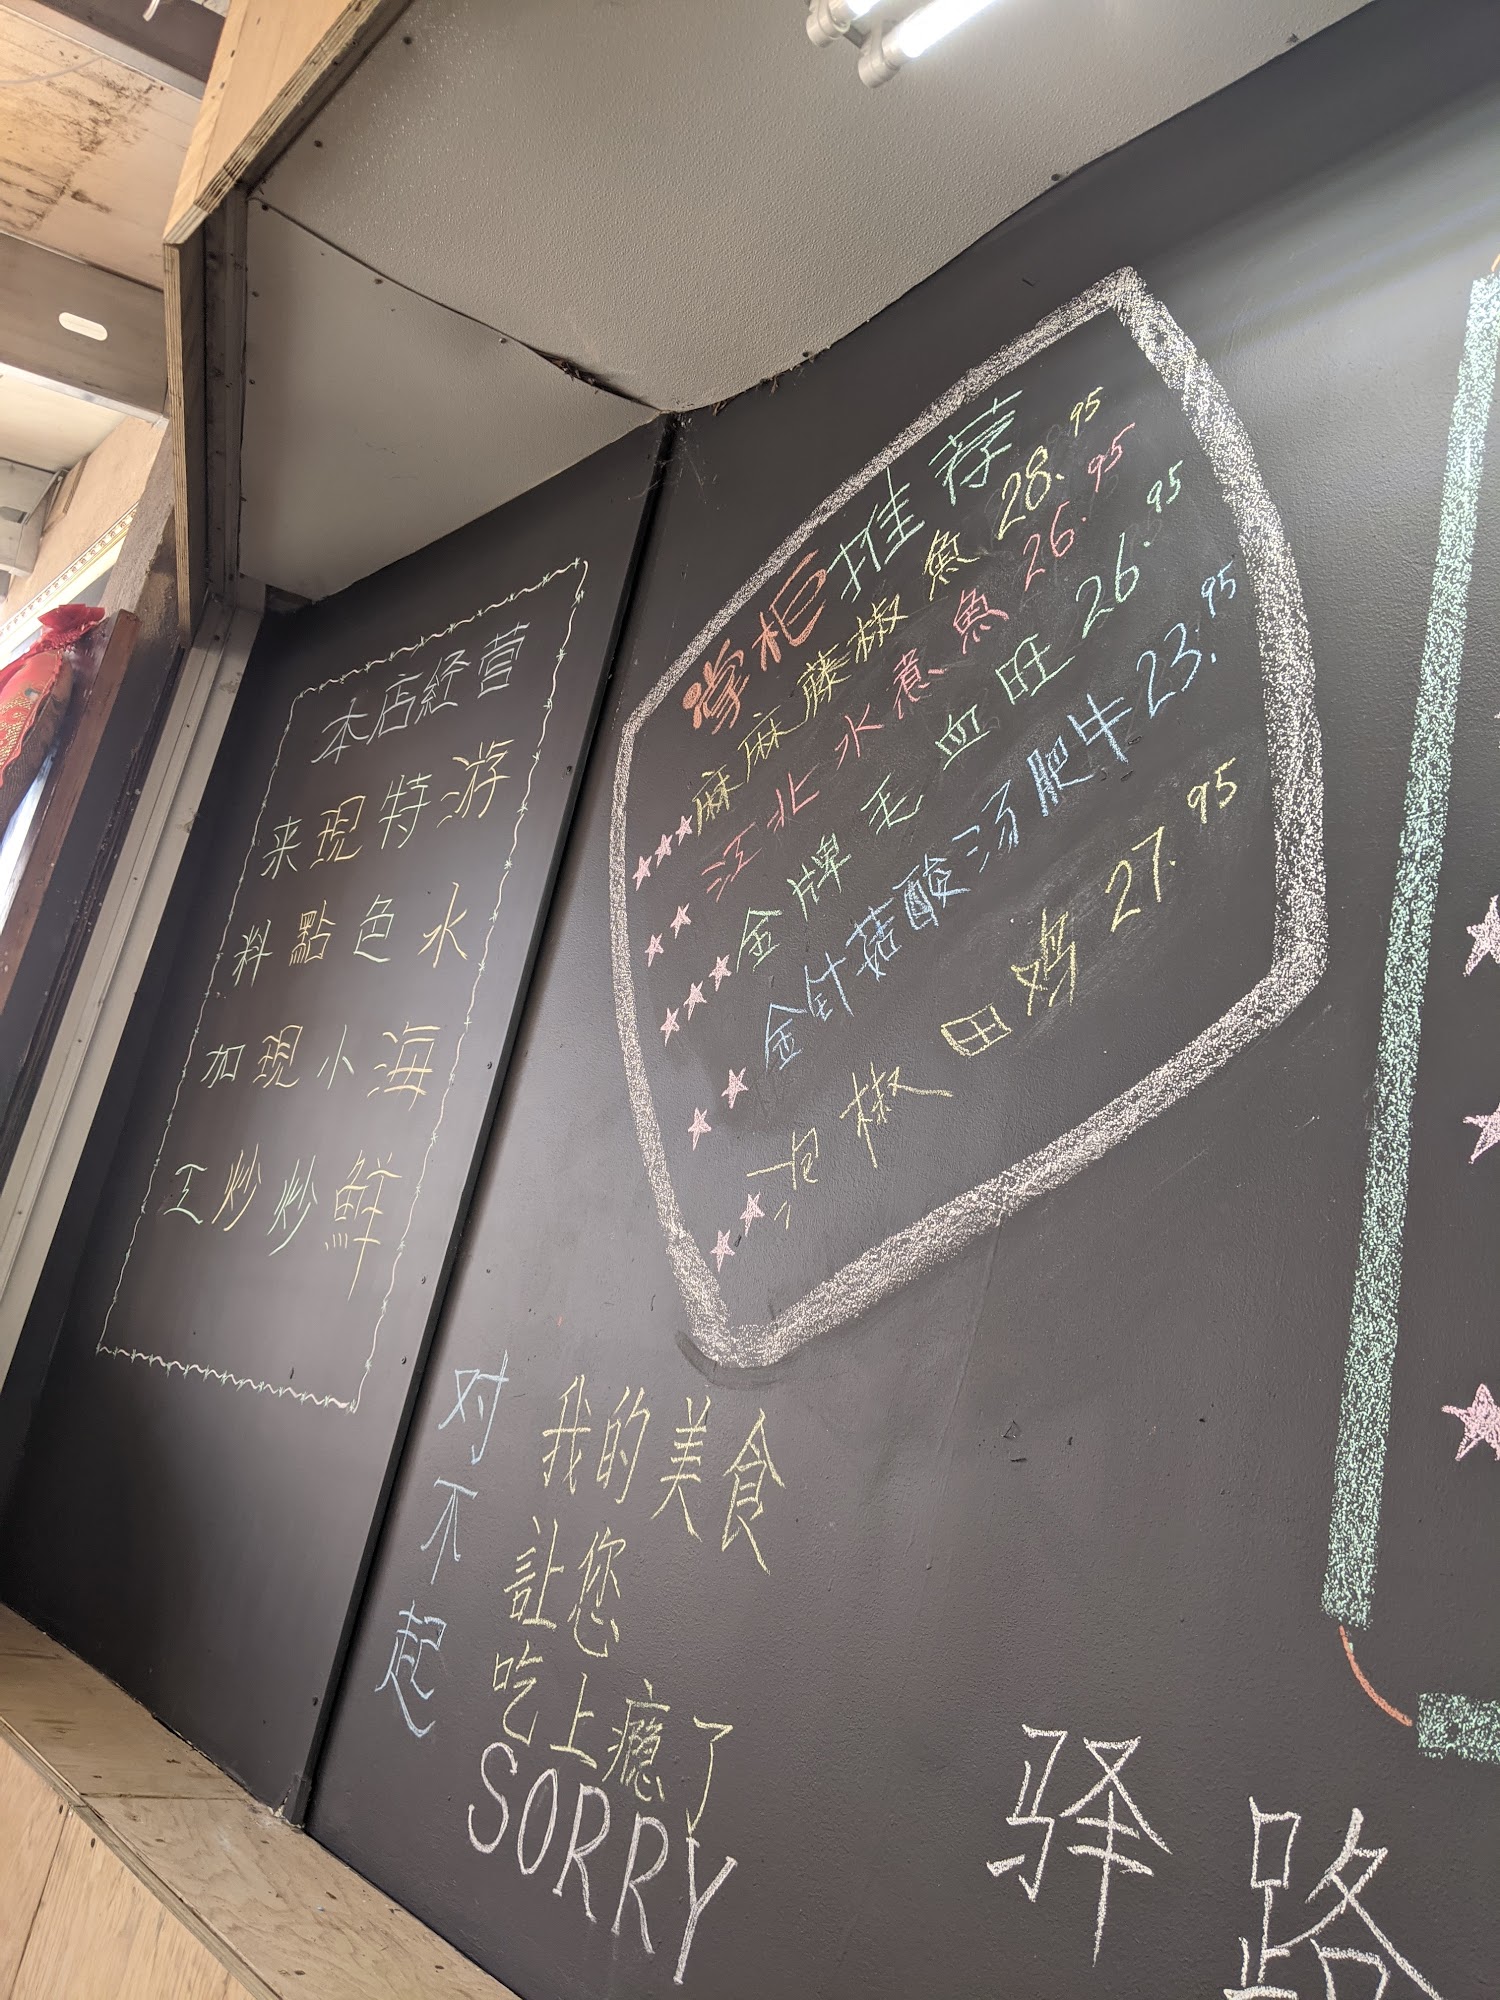 本店经营
游水海鮮
特色小炒
現點現炒
来料加工
掌柜推荐
麻麻藤椒魚 28.95
江北水煮魚 26.95
金牌毛血旺 26.95
金针菇酸汤肥牛 23.95
泡椒田鸡 27.95
对不起
我的美食
让您
吃上瘾了
SORRY
驿路